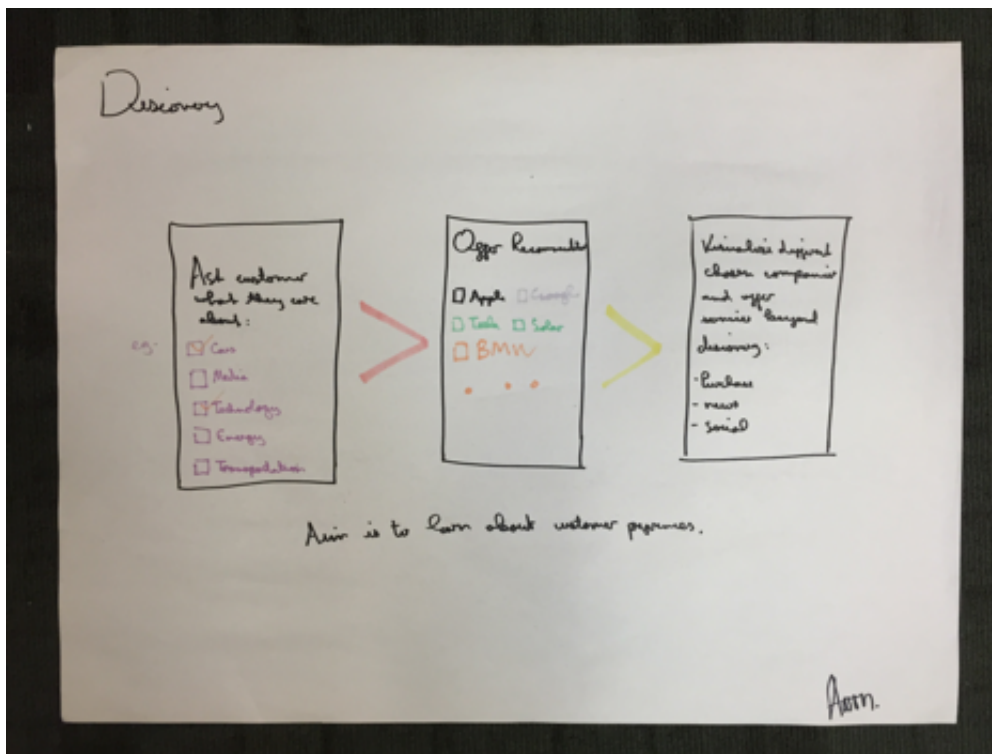 Discovery
Ask customer
what they care
about:
eg.
Cars
Media
Technology
Energy
Transportation
Offer
Apple Google
Tesla Solar
BMW
Visualise different
chosen companies
and offer
services beyond
discovery:
- Purchase
- news
- Social
Aim is to learn about customer preferences.